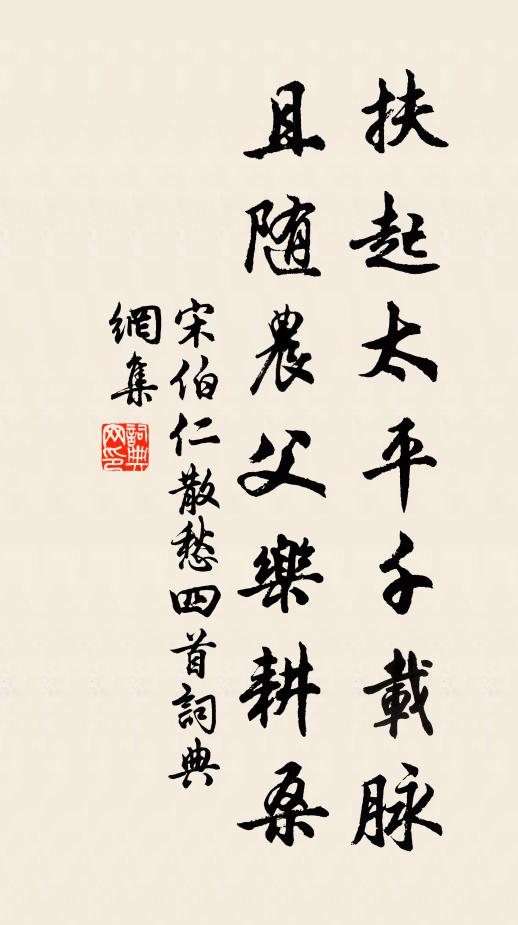 扶起太平千載脉
且随農父樂耕桑
宋伯仁散愁四首詞典
網集
詞典
网印